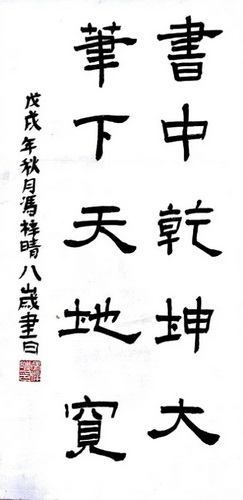 書中乾坤大
筆下天地寬
戊戌年秋月馮梓晴八歲書曰